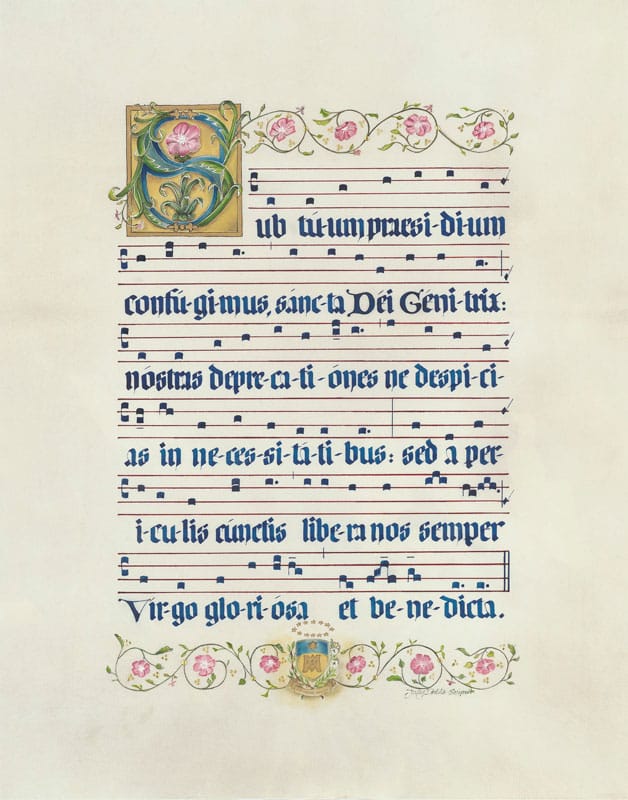 Sub tú-um praesi-di-um
confú-gi-mus, sánc-ta Déi Géni-trix:
nóstras depre-ca-ti-ónes ne despi-ci-
as in ne-ces-si-tá-ti-bus: sed a per-
i-cu-lis cúnctis libe-ra nos semper
Vír-go glo-ri-ósa et be-ne-dícta.